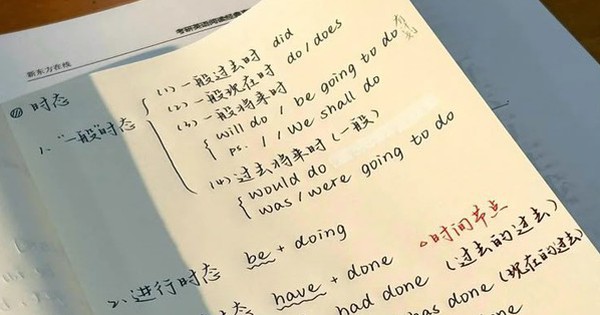 考研英语阅读
新东方在线
时态
1. "一般"时态
(1) 一般过去时 did
(2) 一般现在时 do/does
(3) 一般将来时
will do / be going to do
ps. I / We shall do
(4) 过去将来时(一般)
would do
was/were going to do
2. 进行时态 be + doing
态 have + done △时间节点
had done (过去的过去)
has done (现在的过去)